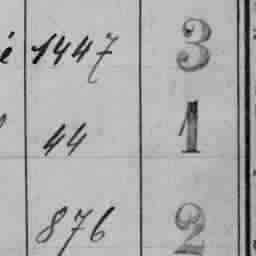 é 1447 3
44 1
876 2